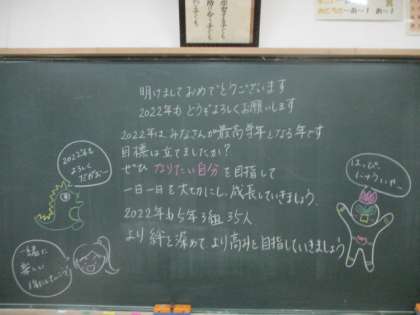 明けましておめでとうございます
2022年も どうぞよろしくお願いします
2022年は みなさんが最高学年となる年です
目標は立てましたか？
ぜひ なりたい自分 を目指して
一日一日を大切にし、成長していきましょう。
2022年も5年3組 35人
より 絆を深めて より高みを目指していきましょう
2022年も
よろしく
だガオー
はっぴー
にゅういやー
一緒に
楽しい